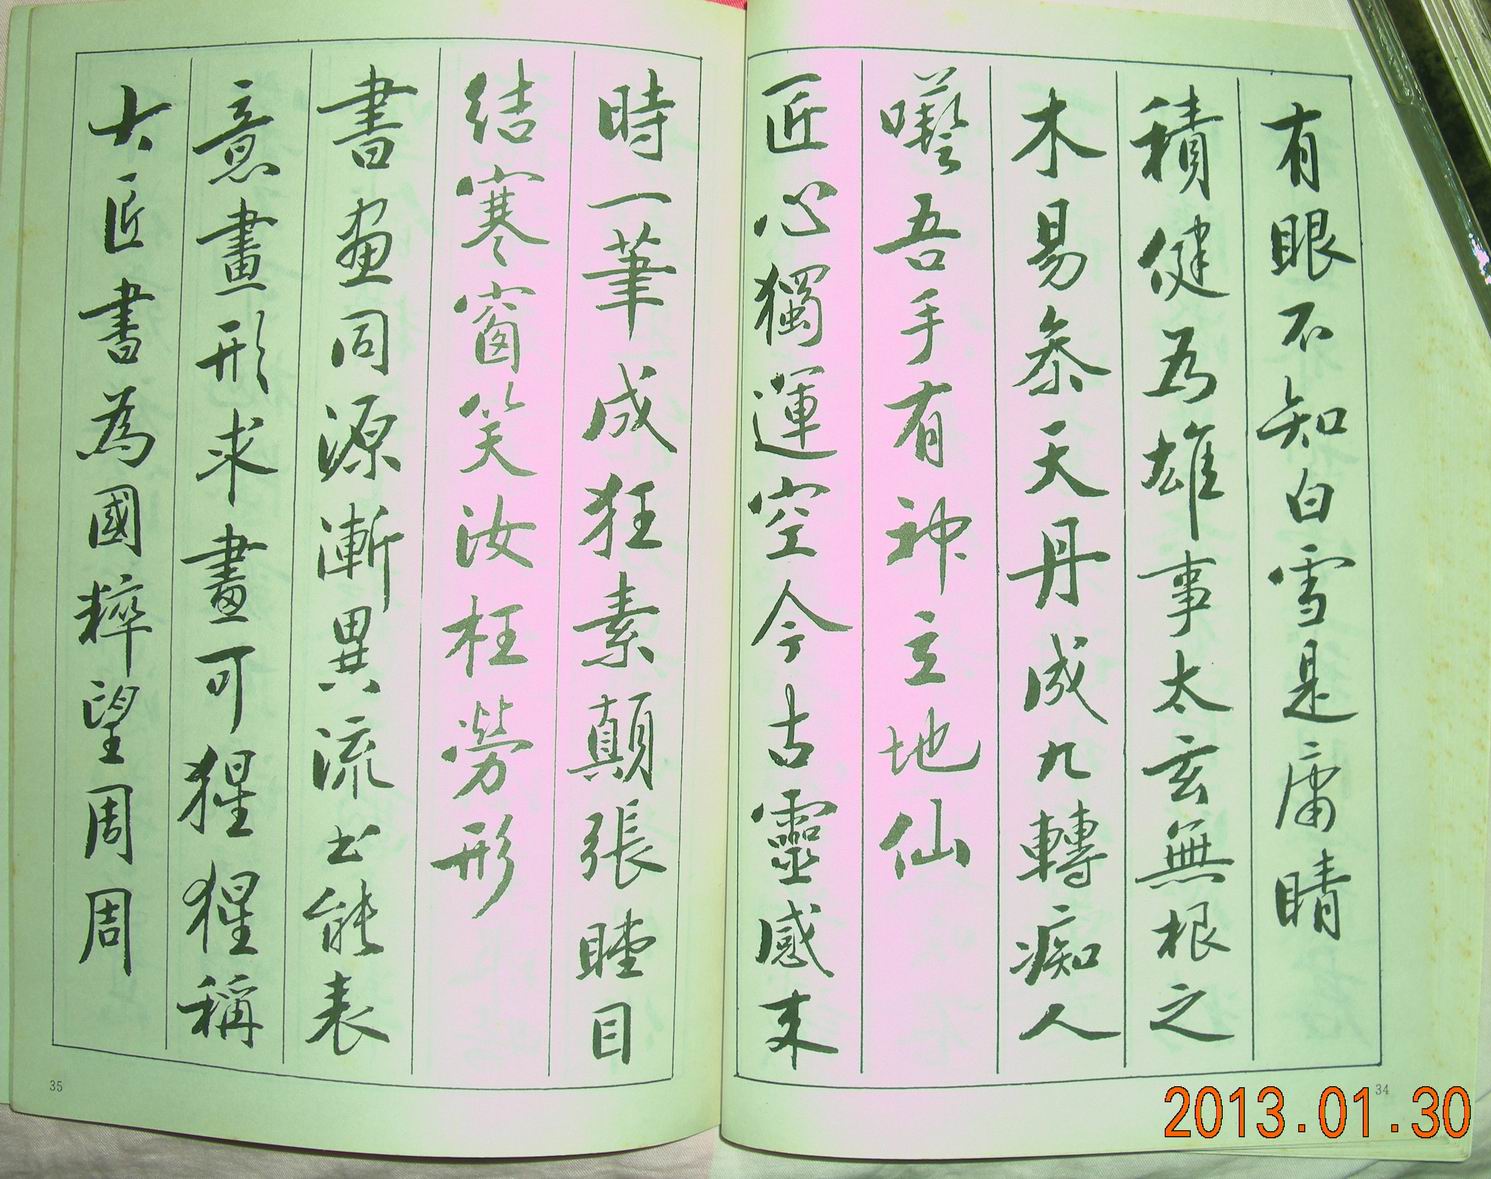 有眼不知白雪是庸睛
積健為雄事太玄無根之
木易参天丹成九轉痴人
囈吾手有神立地仙
匠心獨運空今古靈感来
時一筆成狂素顛張瞠目
結寒窗笑汝枉勞形
書畫同源漸異流書能表
意畫形求畫可猩猩稱
大匠書為國粹望周周
34
35
2013.01.30